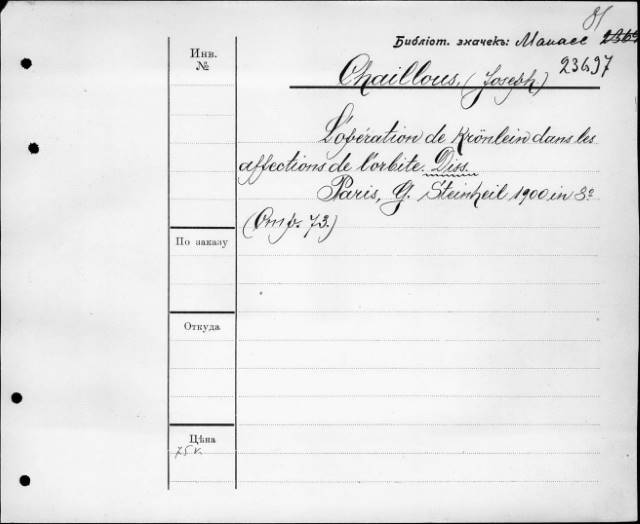 81
Библіот. значекъ: Манасс 2362
23697
Инв.
№
Chaillous, (Joseph)
L'opération de Krönlein dans les
affections de l'orbite. Diss.
Paris, G. Steinheil 1900 in 8º
(Отд. 73.)
По заказу
Откуда
Цѣна
75 к.